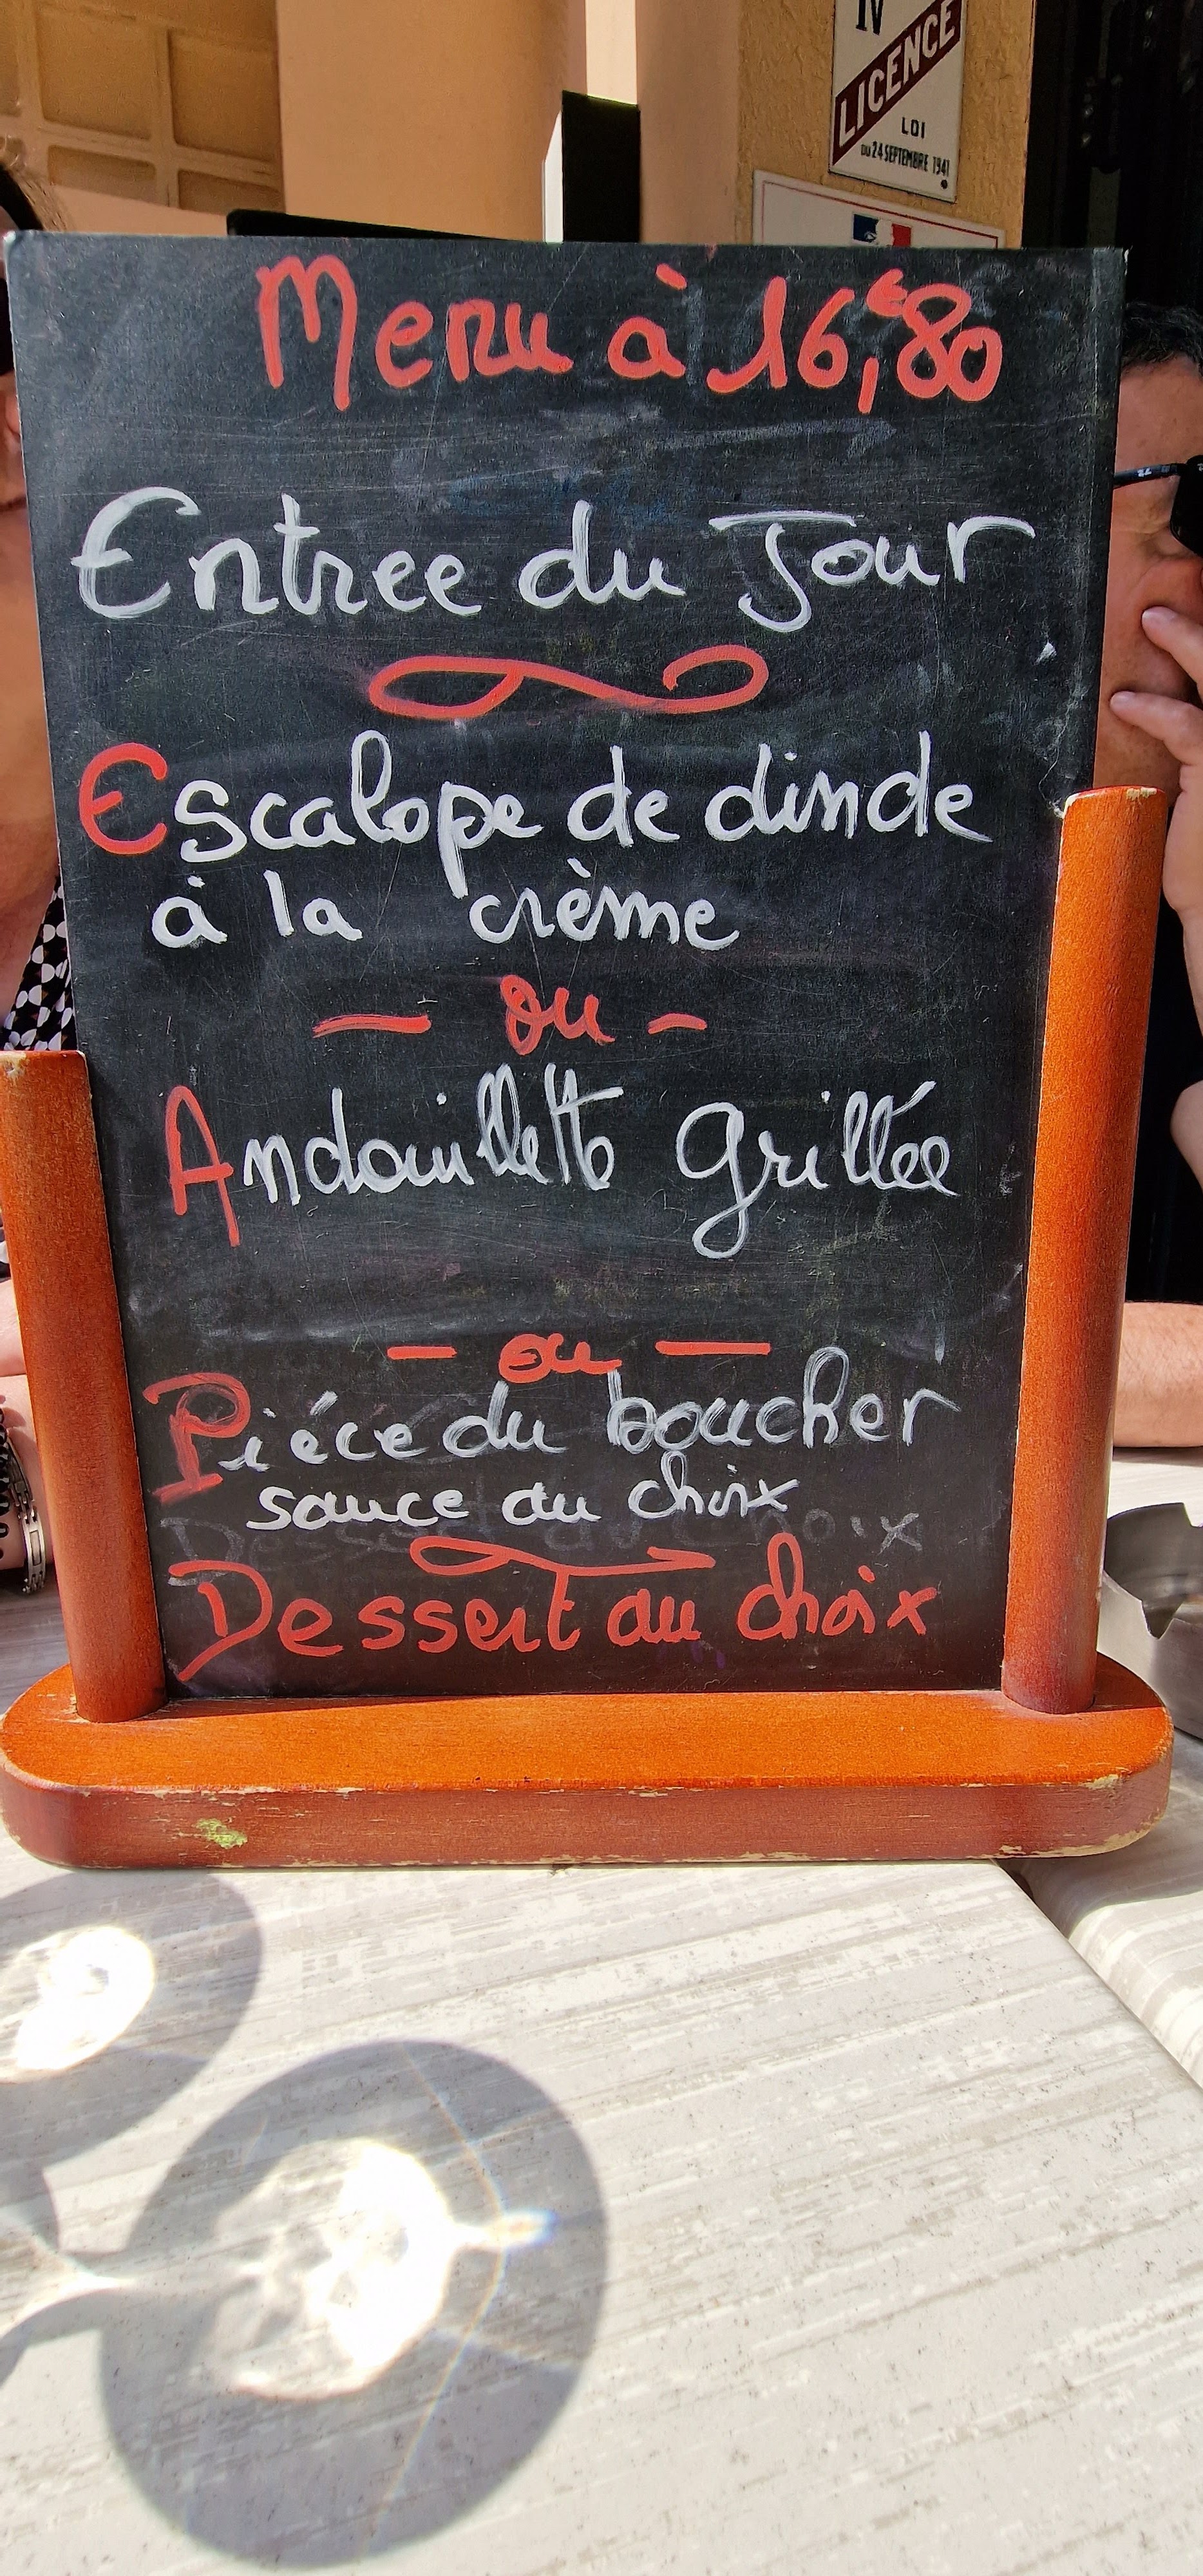 IV
LICENCE
LOI
DU 24 SEPTEMBRE 1941
Menu à 16,€80
Entree du Jour
Escalope de dinde
à la crème
- ou -
Andouillette grillée
- ou -
Piéce du boucher
sauce au choix
Dessert au choix
Dessert au choix